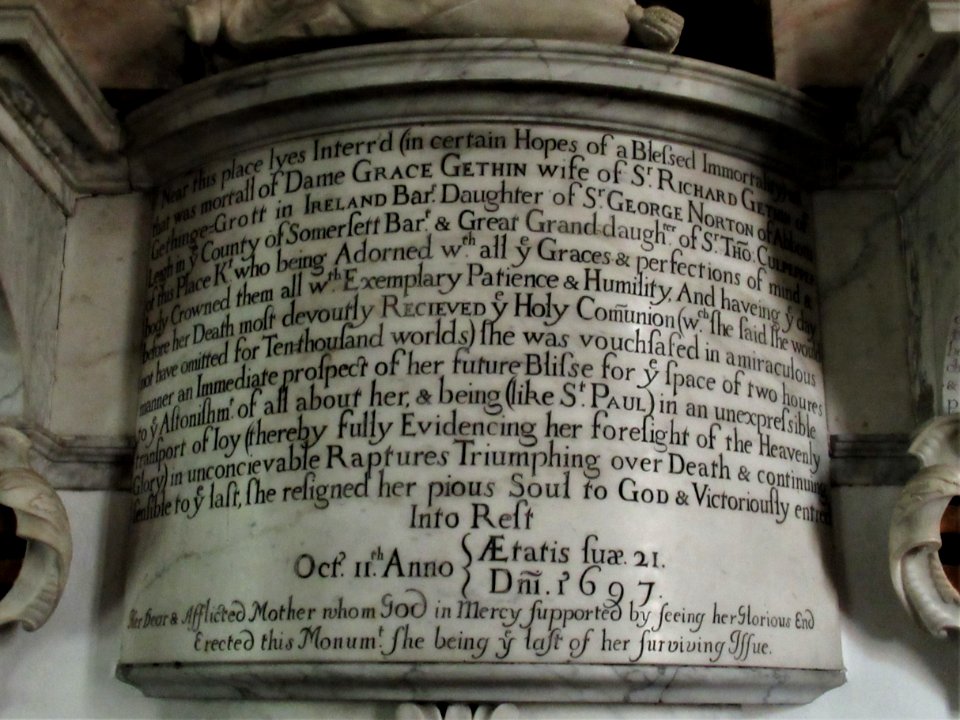 Near this place lyes Interr'd (in certain Hopes of a Bleſsed Immortality)
that was mortall of Dame GRACE GETHIN wife of Sr. RICHARD GETHIN of
Gethinge-Grott in IRELAND Bart. Daughter of Sr. GEORGE NORTON of Abbotts
Leigh in ye County of Somerſett Bart. & Great Grand-daughter of Sr. THO: CULPEPPER
of this Place Kt. who being Adorned wth. all ye Graces & perfections of mind &
body Crowned them all wth. Exemplary Patience & Humility, And haveing ye day
before her Death moſt devoutly RECIEVED ye Holy Com̃union (wch. ſhe ſaid ſhe would
not have omitted for Ten-thouſand worlds) ſhe was vouchſafed in a miraculous
manner an Immediate proſpect of her future Bliſse for ye ſpace of two houres
to ye Aſtoniſhmt. of all about her, & being (like St. PAUL) in an unexpreſsible
tranſport of Joy (thereby fully Evidencing her foreſight of the Heavenly
Glory) in unconcievable Raptures Triumphing over Death & continuing
ſenſible to ye laſt, ſhe reſigned her pious Soul to GOD & Victoriouſly entred
Into Reſt
Octr. 11th. Anno { Ætatis ſuæ. 21.
Dñi. 1697.
Her Dear & Afflicted Mother whom God in Mercy ſupported by ſeeing her Glorious End
Erected this Monumt. ſhe being ye laſt of her ſurviving Iſſue.